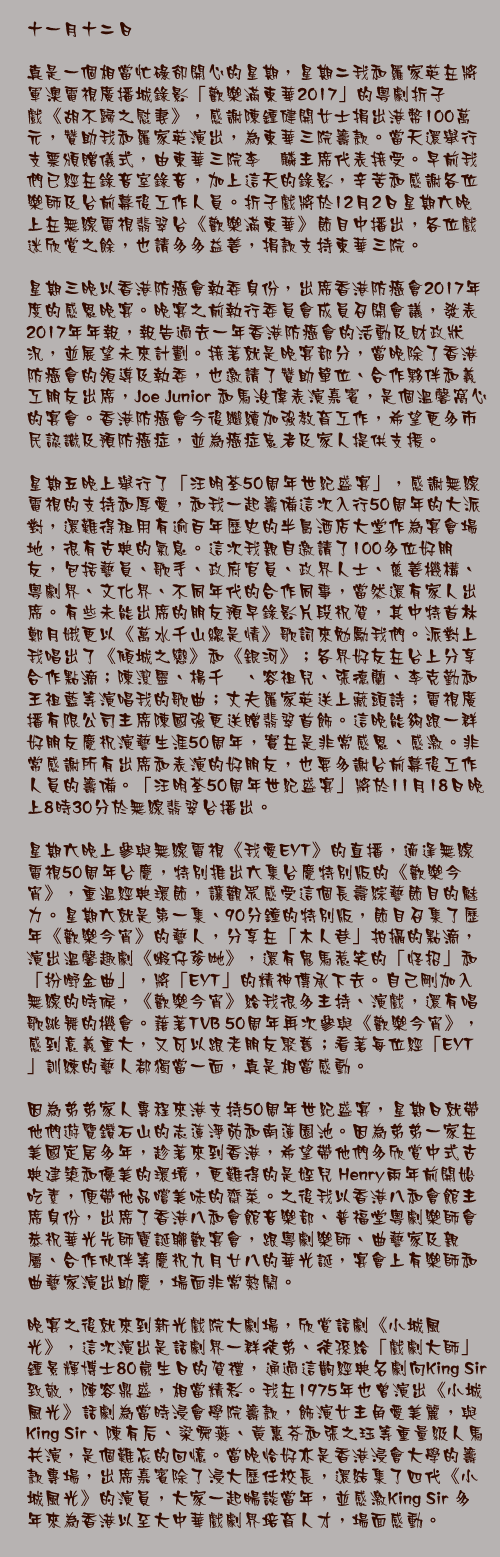 十一月十二日
真是一個相當忙碌卻開心的星期，星期二我和羅家英在將
軍澳電視廣播城錄影「歡樂滿東華2017」的粵劇折子
戲《胡不歸之慰妻》，感謝陳鍾健開女士捐出港幣100萬
元，贊助我和羅家英演出，為東華三院籌款。當天還舉行
支票頒贈儀式，由東華三院李　麟主席代表接受。早前我
們已經在錄音室錄音，加上這天的錄影，辛苦和感謝各位
樂師及台前幕後工作人員。折子戲將於12月2日星期六晚
上在無線電視翡翠台《歡樂滿東華》節目中播出，各位戲
迷欣賞之餘，也請多多益善，捐款支持東華三院。
星期三晚以香港防癌會執委身份，出席香港防癌會2017年
度的感恩晚宴。晚宴之前執行委員會成員召開會議，發表
2017年年報，報告過去一年香港防癌會的活動及財政狀
況，並展望未來計劃。接著就是晚宴部分，當晚除了香港
防癌會的領導及執委，也邀請了贊助單位、合作夥伴和義
工朋友出席，Joe Junior 和馬浚偉表演嘉賓，是個溫馨窩心
的宴會。香港防癌會今後繼續加強教育工作，希望更多市
民認識及預防癌症，並為癌症患者及家人提供支援。
星期五晚上舉行了「汪明荃50周年世紀盛宴」，感謝無線
電視的支持和厚愛，和我一起籌備這次入行50周年的大派
對，還難得租用有逾百年歷史的半島酒店大堂作為宴會場
地，很有古典的氣息。這次我親自邀請了100多位好朋
友，包括藝員、歌手、政府官員、政界人士、慈善機構、
粵劇界、文化界、不同年代的合作同事，當然還有家人出
席。有些未能出席的朋友預早錄影片段祝賀，其中特首林
鄭月娥更以《萬水千山總是情》歌詞來勉勵我們。派對上
我唱出了《傾城之戀》和《銀河》；各界好友在台上分享
合作點滴；陳潔靈、楊千　、容祖兒、張德蘭、李克勤和
王祖藍等演唱我的歌曲；丈夫羅家英送上藏頭詩；電視廣
播有限公司主席陳國強更送贈翡翠首飾。這晚能夠跟一群
好朋友慶祝演藝生涯50周年，實在是非常感恩、感激。非
常感謝所有出席和表演的好朋友，也要多謝台前幕後工作
人員的籌備。「汪明荃50周年世紀盛宴」將於11月18日晚
上8時30分於無線翡翠台播出。
星期六晚上參與無線電視《我愛EYT》的直播，適逢無線
電視50周年台慶，特別推出六集台慶特別版的《歡樂今
宵》，重溫經典環節，讓觀眾感受這個長壽綜藝節目的魅
力。星期六就是第一集、90分鐘的特別版，節目召集了歷
年《歡樂今宵》的藝人，分享在「木人巷」拍攝的點滴，
演出溫馨趣劇《蝦仔爹哋》，還有鬼馬惹笑的「怪招」和
「扮嘢金曲」，將「EYT」的精神傳承下去。自己剛加入
無線的時候，《歡樂今宵》給我很多主持、演戲，還有唱
歌跳舞的機會。藉著TVB 50周年再次參與《歡樂今宵》，
感到意義重大，又可以跟老朋友聚舊；看著每位經「EYT
」訓練的藝人都獨當一面，真是相當感動。
因為弟弟家人專程來港支持50周年世紀盛宴，星期日就帶
他們遊覽鑽石山的志蓮淨苑和南蓮園池。因為弟弟一家在
美國定居多年，趁著來到香港，希望帶他們多欣賞中式古
典建築和優美的環境，更難得的是姪兒 Henry兩年前開始
吃素，便帶他品嚐美味的齋菜。之後我以香港八和會館主
席身份，出席了香港八和會館音樂部、普福堂粵劇樂師會
恭祝華光先師寶誕聯歡宴會，跟粵劇樂師、曲藝家及親
屬、合作伙伴等慶祝九月廿八的華光誕，宴會上有樂師和
曲藝家演出助慶，場面非常熱鬧。
晚宴之後就來到新光戲院大劇場，欣賞話劇《小城風
光》，這次演出是話劇界一群徒弟、徒孫給「戲劇大師」
鍾景輝博士80歲生日的賀禮，通過這齣經典名劇向King Sir
致敬，陣容鼎盛，相當精彩。我在1975年也曾演出《小城
風光》話劇為當時浸會學院籌款，飾演女主角愛美麗，與
King Sir、陳有后、梁舜燕、黃蕙芬和張之珏等重量級人馬
共演，是個難忘的回憶。當晚恰好亦是香港浸會大學的籌
款專場，出席嘉賓除了浸大歷任校長，還結集了四代《小
城風光》的演員，大家一起暢談當年，並感激King Sir 多
年來為香港以至大中華戲劇界培育人才，場面感動。